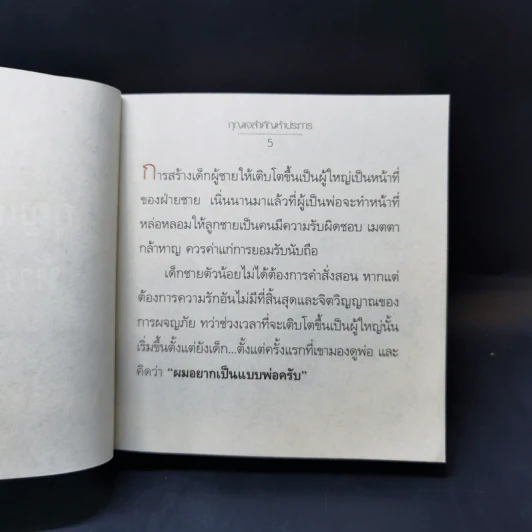 กุญแจสำคัญห้าประการ
5
การสร้างเด็กผู้ชายให้เติบโตขึ้นเป็นผู้ใหญ่เป็นหน้าที่
ของฝ่ายชาย เนิ่นนานมาแล้วที่ผู้เป็นพ่อจะทำหน้าที่
หล่อหลอมให้ลูกชายเป็นคนมีความรับผิดชอบ เมตตา
กล้าหาญ ควรค่าแก่การยอมรับนับถือ
เด็กชายตัวน้อยไม่ได้ต้องการคำสั่งสอน หากแต่
ต้องการความรักอันไม่มีที่สิ้นสุดและจิตวิญญาณของ
การผจญภัย ทว่าช่วงเวลาที่จะเติบโตขึ้นเป็นผู้ใหญ่นั้น
เริ่มขึ้นตั้งแต่ยังเด็ก...ตั้งแต่ครั้งแรกที่เขามองดูพ่อ และ
คิดว่า “ผมอยากเป็นแบบพ่อครับ”